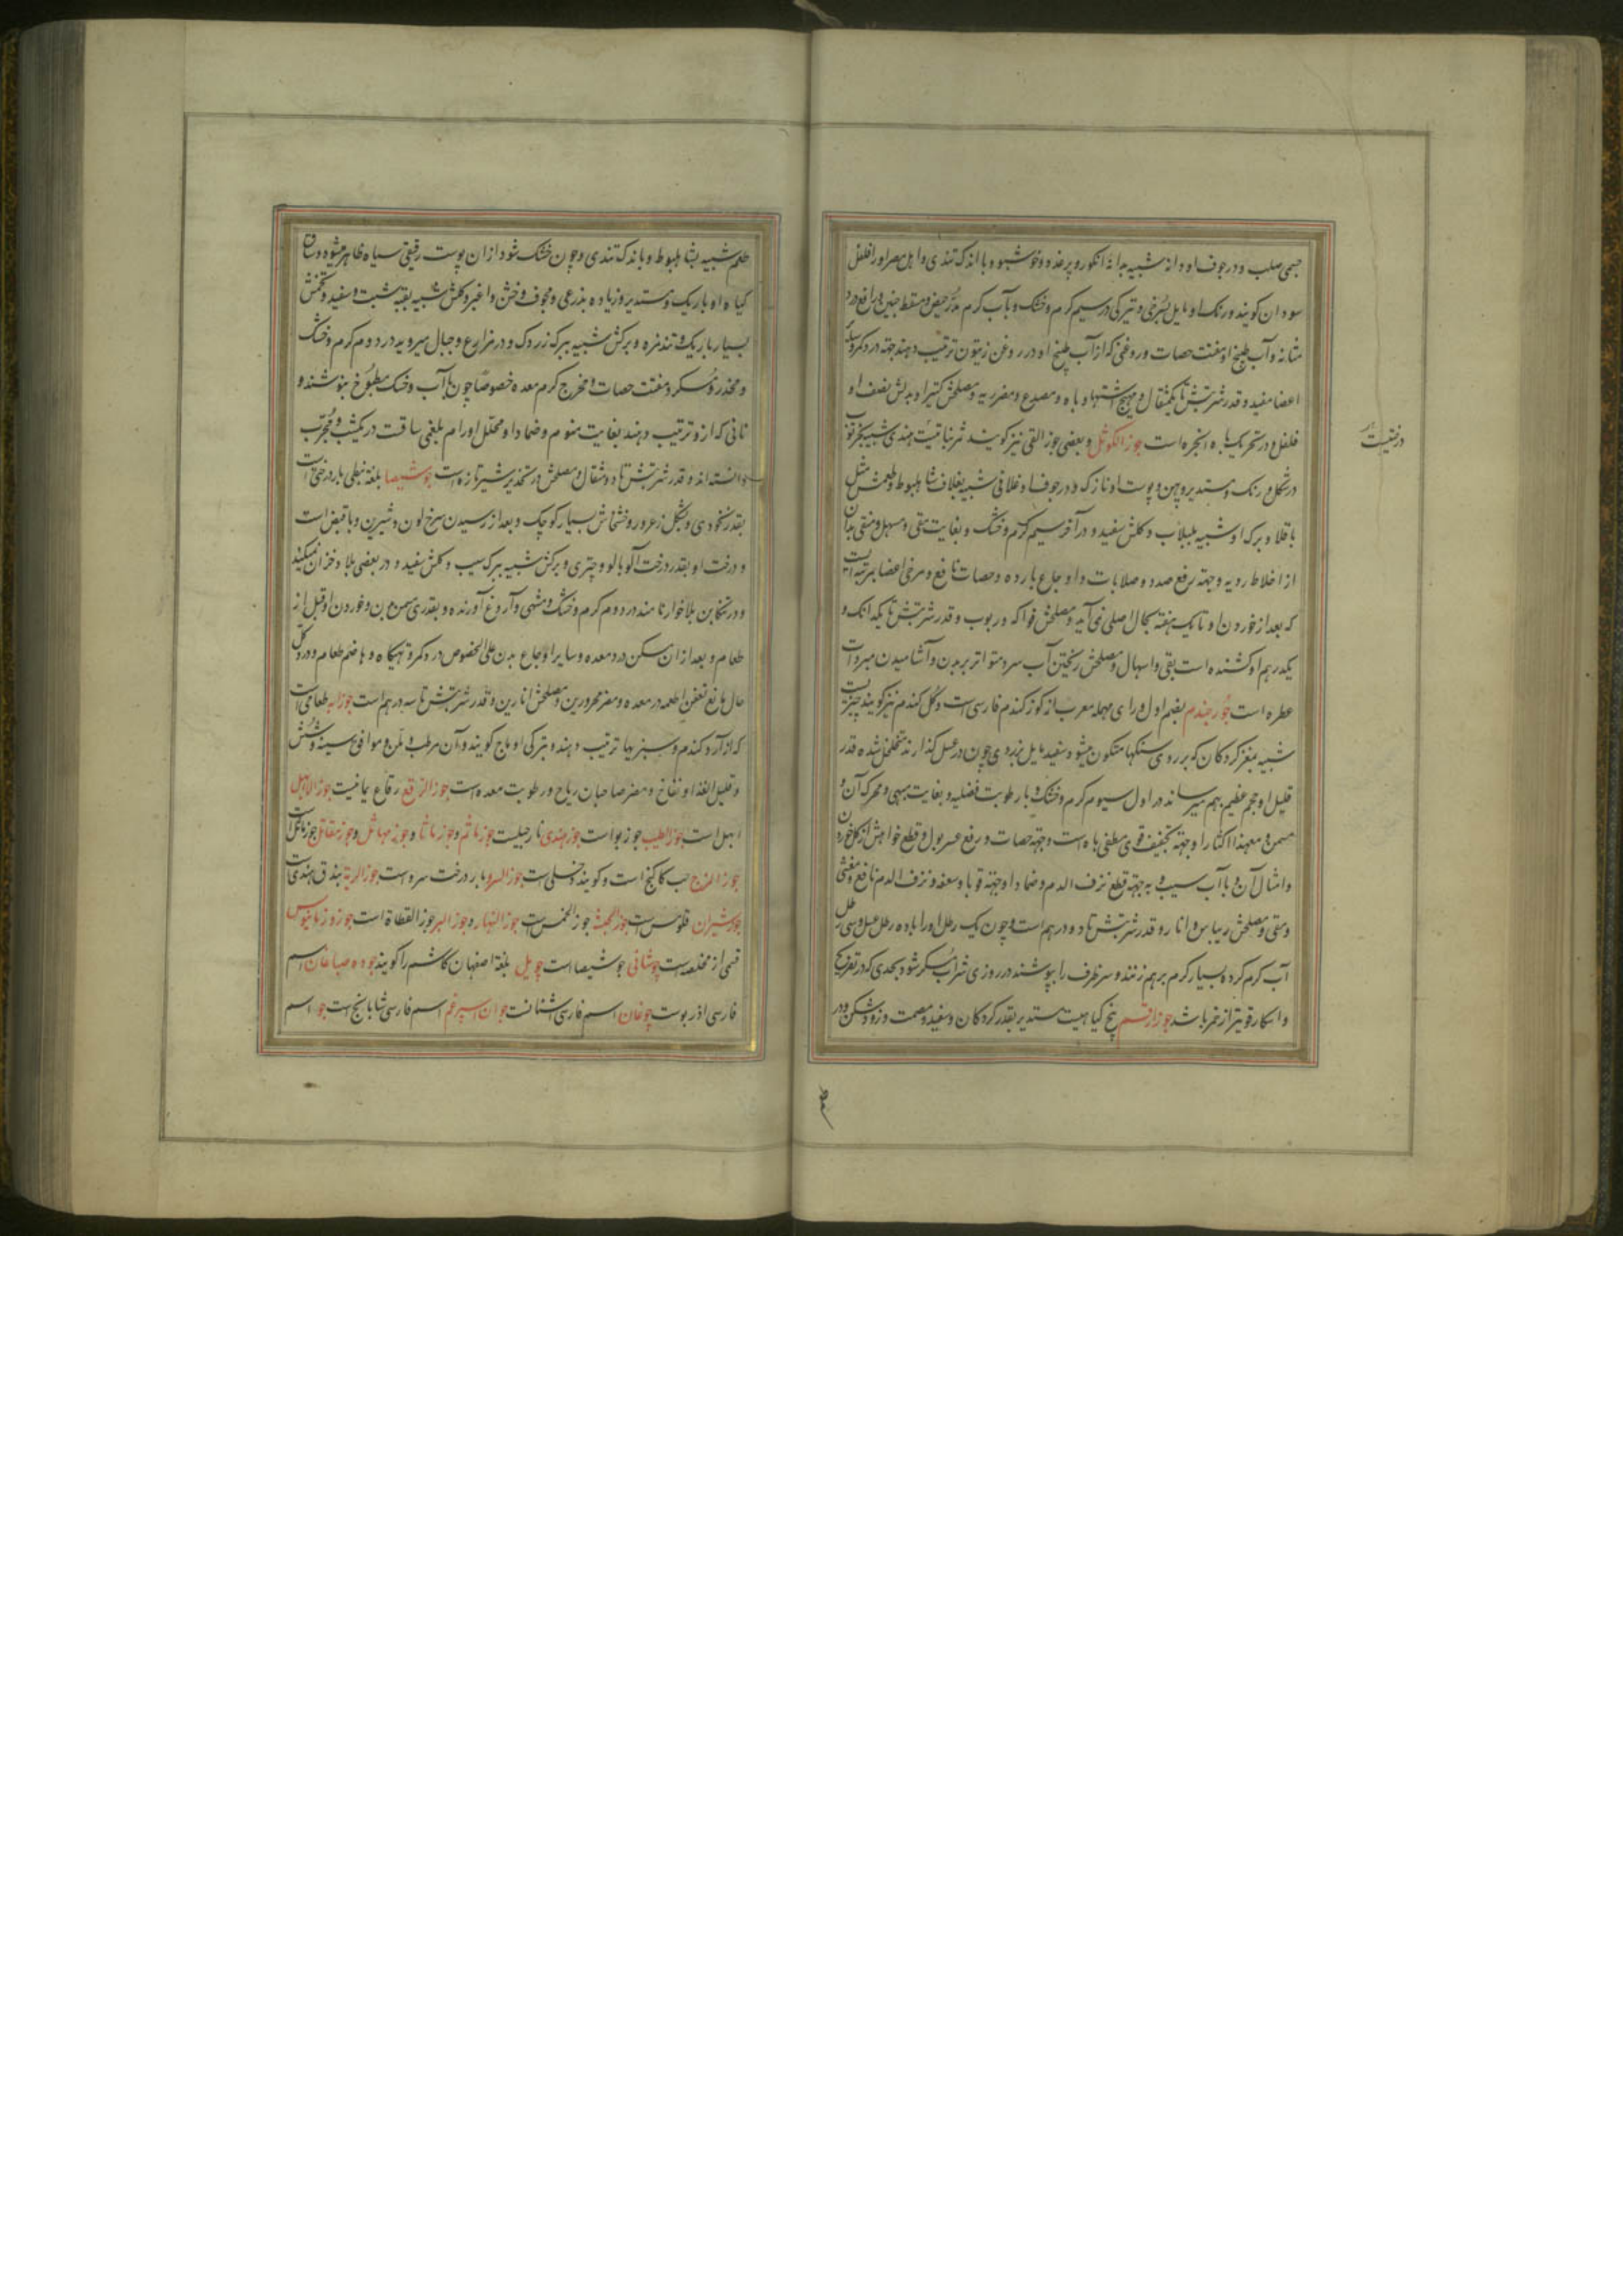 جسمی صلب و در جوف او دانهٔ شبیه بدانهٔ انکور و پر غدد و خوشبو و با اندک تندی و اهل مصر او را فلفل
سودان کویند و رنک او مایل بسرخی و تیرکی در سیم کرم و خشک و با آب کرم مدر حیض و مسقط جنین و رافع درد
مثانه و آب طبیخ او مفتت حصات و روغنی که از آب طبیخ او در روغن زیتون ترتیب دهند جهة درد کمر و سایر
اعضا مفید و قدر شربتش تا یکمثقال و مهیج اشتها و باه و مصدع و مضر ریه و مصلحش کتیرا و بدلش نصف او
فلفل و در تحریک باه انجره است جوز الکوثل و بعضی جوز القی نیز کویند ثمر نباتیست هندی شبیه بخرنوب
در شکل و رنک و مستدیر و پهن و پوست او نازک و در جوف او غلافی شبیه بغلاف شاه بلوط و طعمش مثل
باقلا و برک او شبیه بلبلاب و کلش سفید و در آخر سیم کرم و خشک و بغایت مقی و مسهل و منقی بدن
از اخلاط ردیه و جهة رفع صدد و صلابات و اوجاع بارده و حصات نافع و مرخی اعضا بمرتبه ایست
که بعد از خوردن او تا یک هفته بحال اصلی نمی آید و مصلحش فواکه و ربوب و قدر شربتش تا یکدانک و
یکدرهم او کشنده است بقی و اسهال و مصلحش ریختن آب سرد متواتر بر بدن و آشامیدن مبردات
عطره است جوز جندم بضم اول و رای مهمله معرب از کوز کندم فارسی است و کل کندم نیز کویند چیزیست
شبیه بمغز کردکان که بر روی سنکها متکون میشود سفید مایل بزردی چون در عسل کذارند متخلخل شده قدر
قلیل او حجم عظیم بهم میرساند در اول سیوم کرم و خشک و با رطوبت فضلیه و بغایت مبهی و محرک آن و
مسمن و معهذا اکثار او جهة تجفیف قوی مطفی باه است و جهة حصات و رفع عسر بول و قطع خواهش از کل خوردن
و امثال آن و با آب سیب و به جهة قطع نزف الدم و ضمادا و جهة قوبا و سعفه و نزف الدم نافع و مغشی
و مقی و مصلحش ریباس و انار و قدر شربتش تا دو درهم است و چون یک رطل او را با ده رطل عسل و سی رطل
آب کرم کرده بسیار کرم بر هم زنند و سر ظرف را بپوشند در روزی شراب مسکر شود بحدی که در تفریح
و اسکار قویتر از خمر باشد جوز ارقم بیخ کیاهیست مستدیر بقدر کردکان و سفید و مصمت و زود شکن و در
طعم شبیه بشاه بلوط و با اندک تندی و چون خشک شود از ان پوست رقیقی سیاه ظاهر میشود و ساق
کیاه او باریک و مستدیر و زیاده بذرعی و مجوف و خشن و اغبر و کلش شبیه بقبه شبت و سفید و تخمش
بسیار باریک و تند مزه و برکش شبیه ببرک زردک و در مزارع و جبال میروید در دوم کرم و خشک
و مخدر و مسکر و مفتت حصات و مخرج کرم معده خصوصا چون با آب و خشک مطبوخ بنوشند و
نانی که از و ترتیب دهند بغایت منوم و ضمادا و محلل اورام بلغمی ساقست در یکشب و مجرب
دانسته اند و قدر شربتش تا دو مثقال و مصلحش در تخدیر شیر تازه است جوشیصا بلغة نبطی بار درختیست
بقدر نخودی و بشکل زعرور و خشخاش بسیار کوچک و بعد از رسیدن سرخ لون و شیرین و با قبض است
و درخت او بقدر درخت آلو بالو و چتری و برکش شبیه ببرک سیب و کلش سفید و در بعضی بلاد خزان نمیکند
و در تنکابن بلاخوار نامند در دوم کرم و خشک و مشهی و آروغ آورنده و بقدری مسمن بدن و خوردن او قبل از
طعام و بعد از ان مسکن درد معده و سایر اوجاع بدن علی الخصوص درد کمر و تهیکاه و هاضم طعام و در کل
حال مانع تعفن اطعمه در معده و مضر محرورین و مصلحش انارین و قدر شربتش تا سه درهم است جوزابه طعامیست
که از آرد کندم و سبزیها ترتیب دهند و بترکی اوماج کویند و آن مرطب و ملین و موافق سینه و شش
و قلیل الغذا و نفاخ و مضر صاحبان ریاح و رطوبت معده است جوز الرقع رقاع یمانیست جوز الابهل
ابهل است جوز الطیب جوز بوا است جوز هندی نارجیلست جوز ماثم و جوز ماثا و جوز مهاثل و جوز مقاتل جوز ماثل است
جوز المرج حب کاکنج است و کویند دخلی است جوز السرو بار درخت سرو است جوز الریة بندق هندیست
جوشیران قلومس است جوز الخبث جوز الخمس است جوز النهار و جوز البر جوز القطاة است جوز و زمانیوس
قسمی از مخلصه است جوشانی جوشیصا است جویل بلغة اصفهان کاشم را کویند جوده صباغان اسم
فارسی اذربو است چوغان اسم فارسی اشنانست جوان اسپرغم اسم فارسی شابابنج است جو اسم